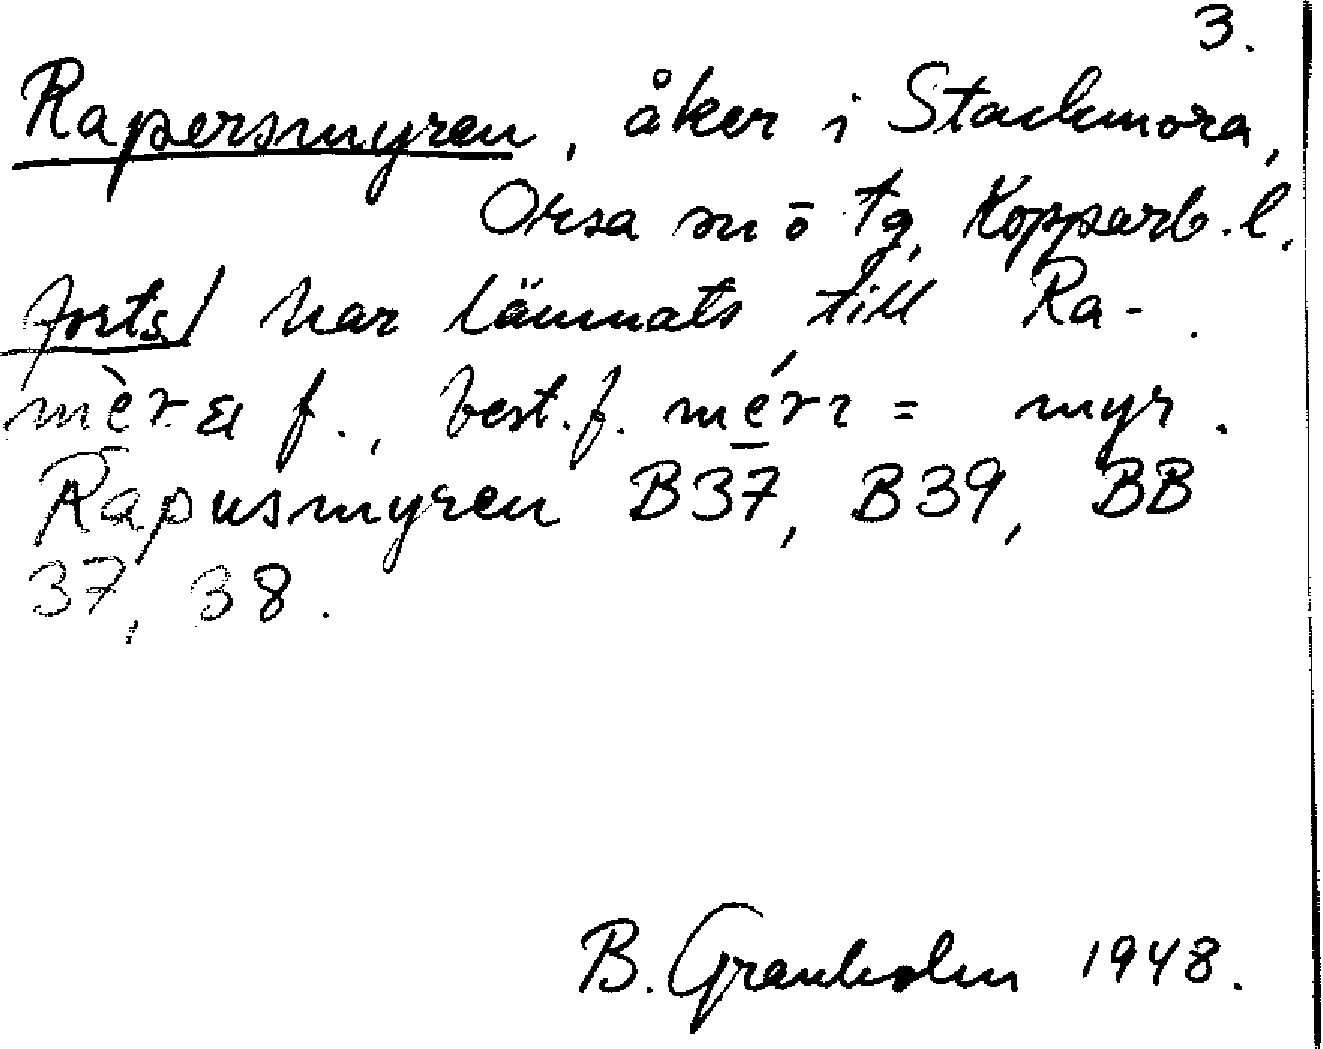 3.
Rapersmyren, åker i Stackmora,
Orsa sn o tg, Kopparb. l.
forts/ har lämnats till Ra-.
mèra f., best. f. mérı = myr.
Rapusmyren B37, B39, BB
37, 38.
B. Granholm 1948.